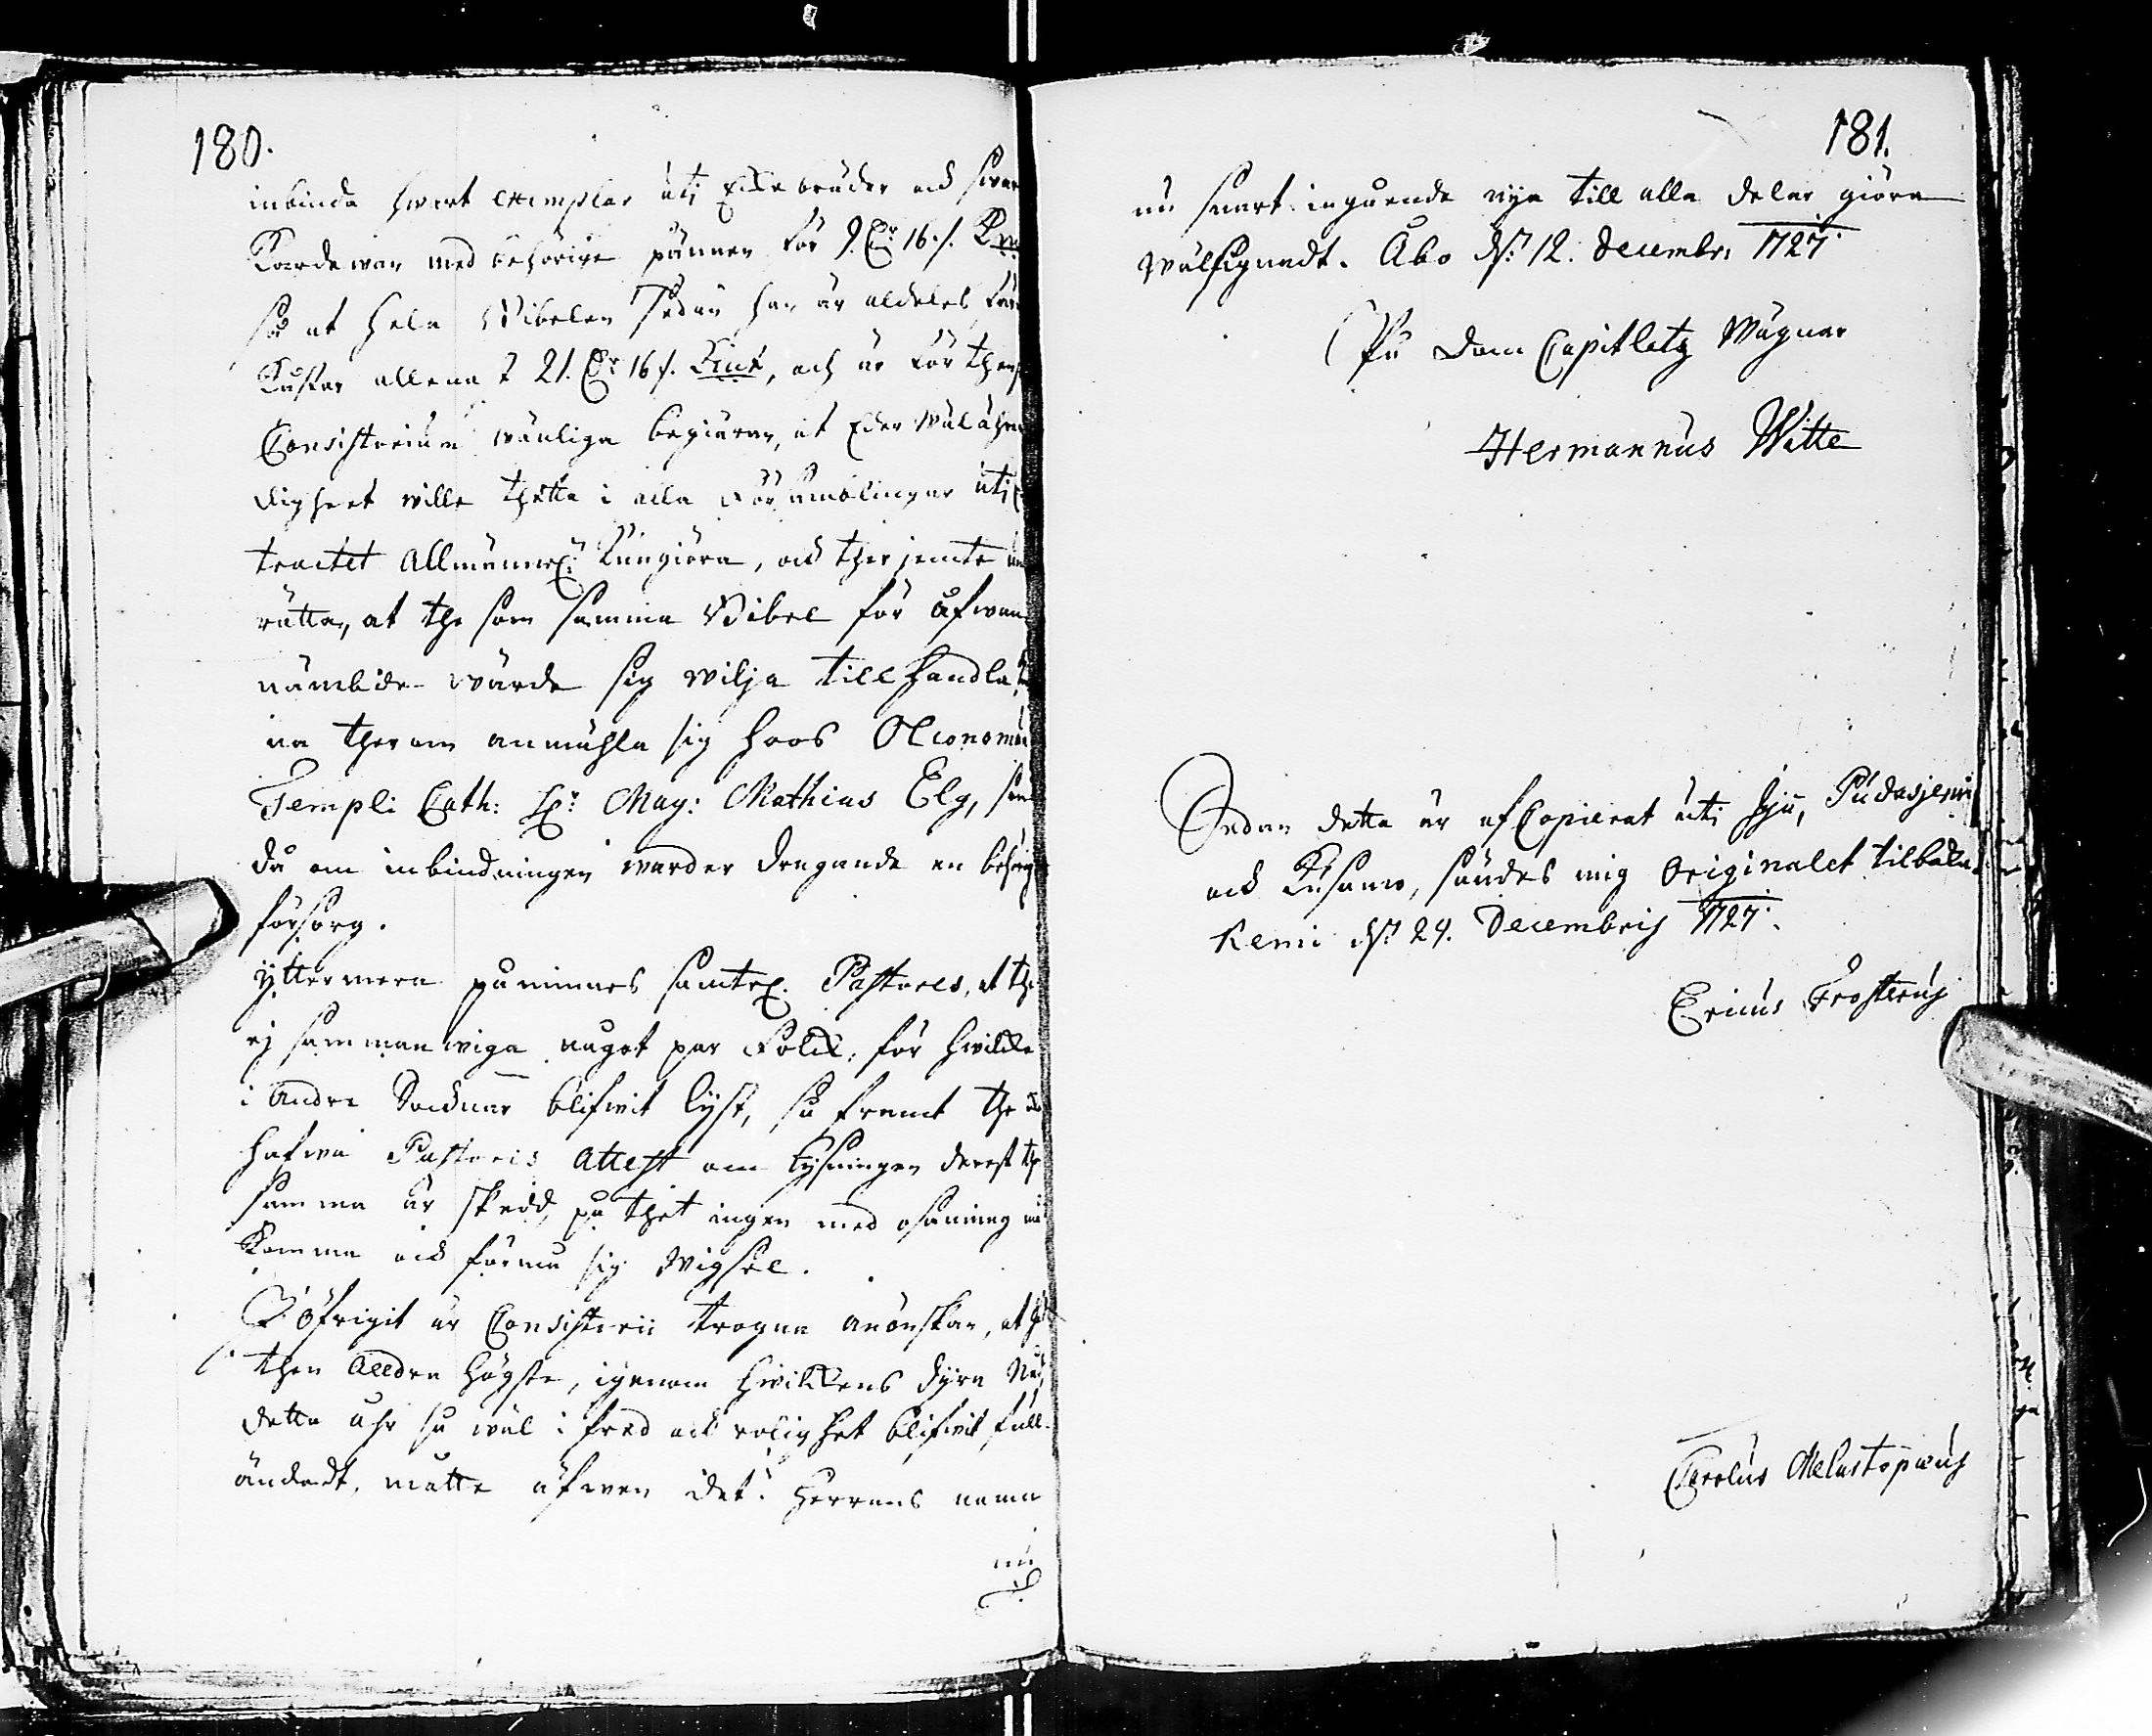 180.
inbinda hwart exemplar uti Ekebräder och swart
Karduwan med behörige spännen för 9. Dr 16 /. Kmt
så at hela Bibelen sedan han är aldeles
Kostar allenast 21. Dr 16 /. Kmt, och är för then
Consistorium wänliga begiäran, at Eder wälähre
dighet wille thetta i alla Församblingar uti
tractet Allmänneligen Kungiöra, och ther jemte
rätta, at the som samma Bibel för åfwan
nämbde wärde sig wilja tillhandla
na therom anmähla sig hoos Oeconomum
Templi Cath: Hr Mag: Mathias Elg, som
då om inbindningen warder dragande en behörig
försorg.
Yttermera påminnes samtel. Pastores, at the
ej samman wiga något par Folck, för hwilcka
i andra Sochnar blifwit lyst, så framt the
hafwa Pastoris attest om lysningen derest
samma är skedd, på thet ingen med osanning må
komma och förmå sig Wigsel.
I öfrigit är Consistorii trogna anönskan, at
then Alldra högste, igenom hwilckens dyra Nåd
detta åhr så wäl i fred och rolighet blifwit full-
ändadt, måtte äfwen det i Herrans namn
nu
181.
nu snart ingående nya till alla delar giöra
wälsignadt. Åbo d. 12. Decembr. 1727.
På Dom Capitletz Wägnar
Hermannus Witte
Sedan detta är afCopierat uti Ijo, Pudasjerfwi
och Kusamo, sändes mig Originalet tilbaka.
Kemi d. 29. Decembris 1727.
Ericus Frosterus
Carolus Melartopæus